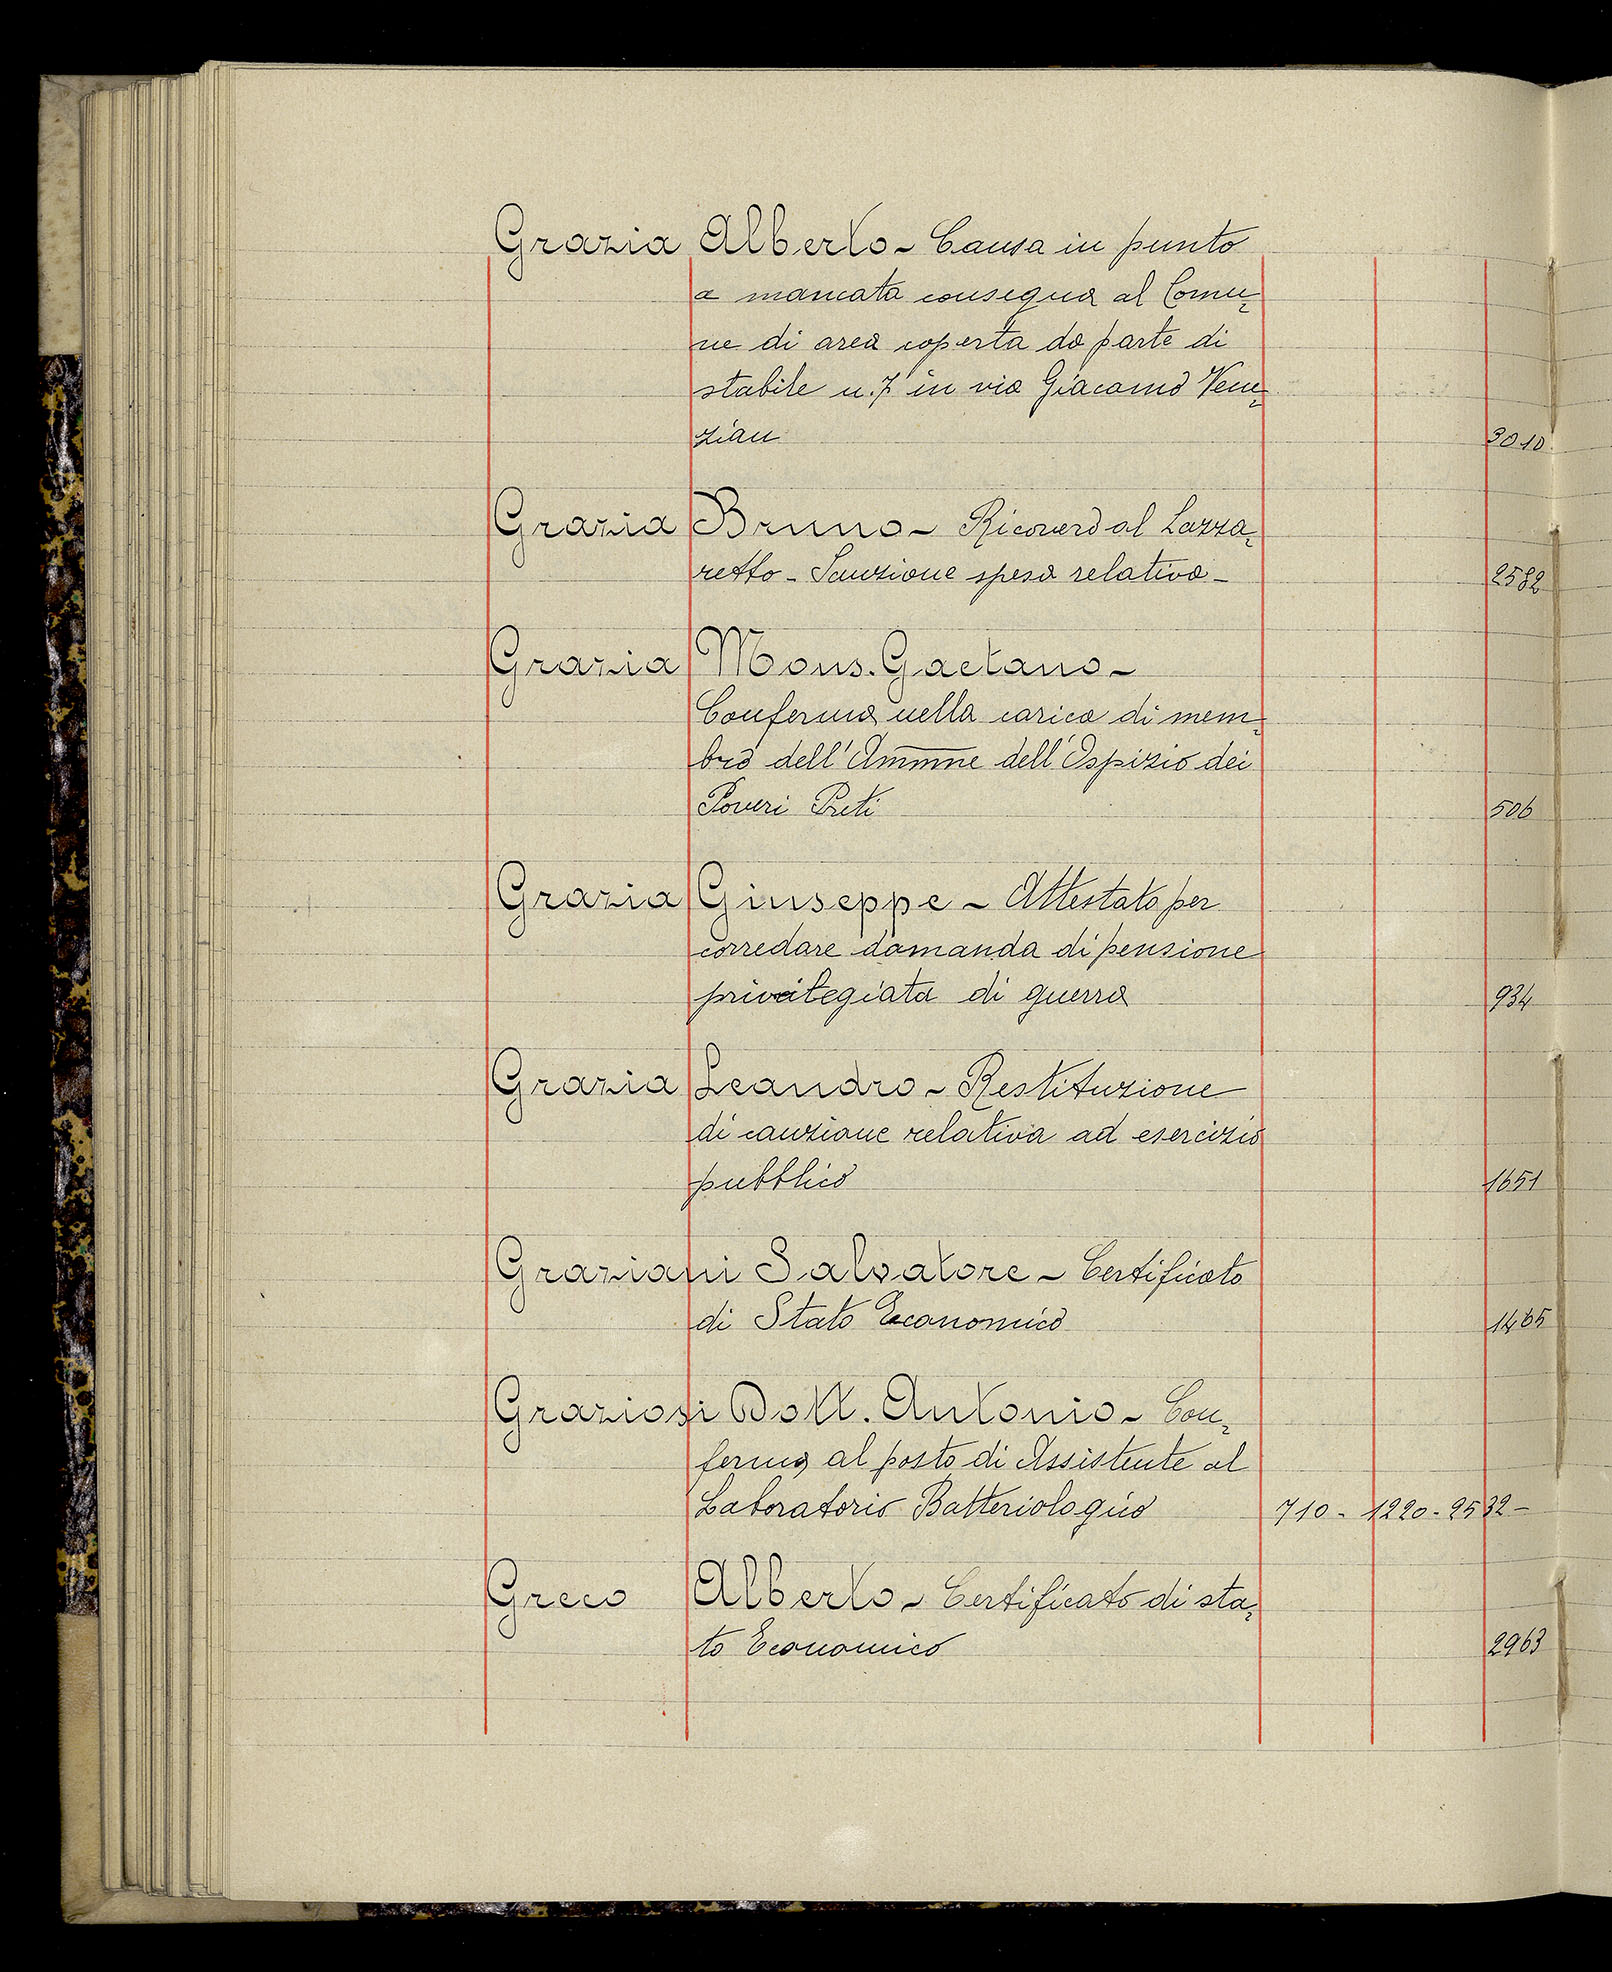 Grazia Alberto - Causa in punto
a mancata consegna al Comu=
ne di area coperta da parte di
stabile n. 7 in via Giacomo Vene=
zian 3010
Grazia Bruno - Ricovero al Lazza=
retto - Sanzione spesa relativa - 2582
Grazia Mons. Gaetano -
Conferma nella carica di mem=
bro dell'Ammne dell'Ospizio dei
Poveri Preti 506
Grazia Giuseppe - Attestato per
corredare domanda di pensione
privilegiata di guerra 934
Grazia Leandro - Restituzione
di cauzione relativa ad esercizio
pubblico 1651
Graziani Salvatore - Certificato
di Stato Economico 1465
Graziosi Dott. Antonio - Con=
ferma al posto di Assistente al
Laboratorio Batteriologico 710 - 1220 - 2532 -
Greco Alberto - Certificato di sta=
to Economico 2963